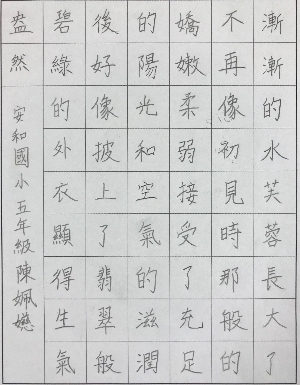 漸漸的水芙蓉長大了
不再像初見時那般的
嬌嫩柔弱接受了充足
的陽光和空氣的滋潤
後好像披上了翡翠般
碧綠的外衣顯得生氣
盎然
安和國小五年級陳姵